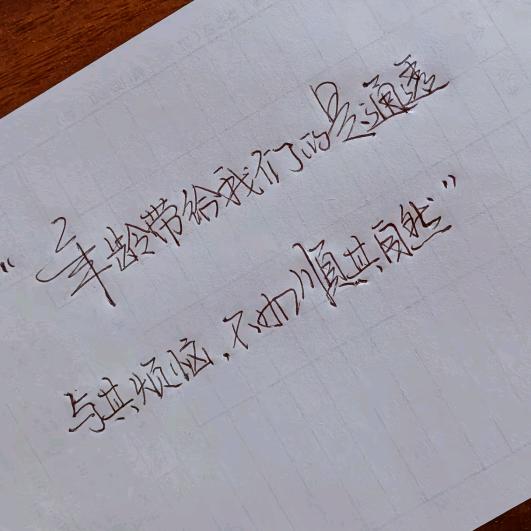 “年龄带给我们的是通透
与其烦恼，不如顺其自然”